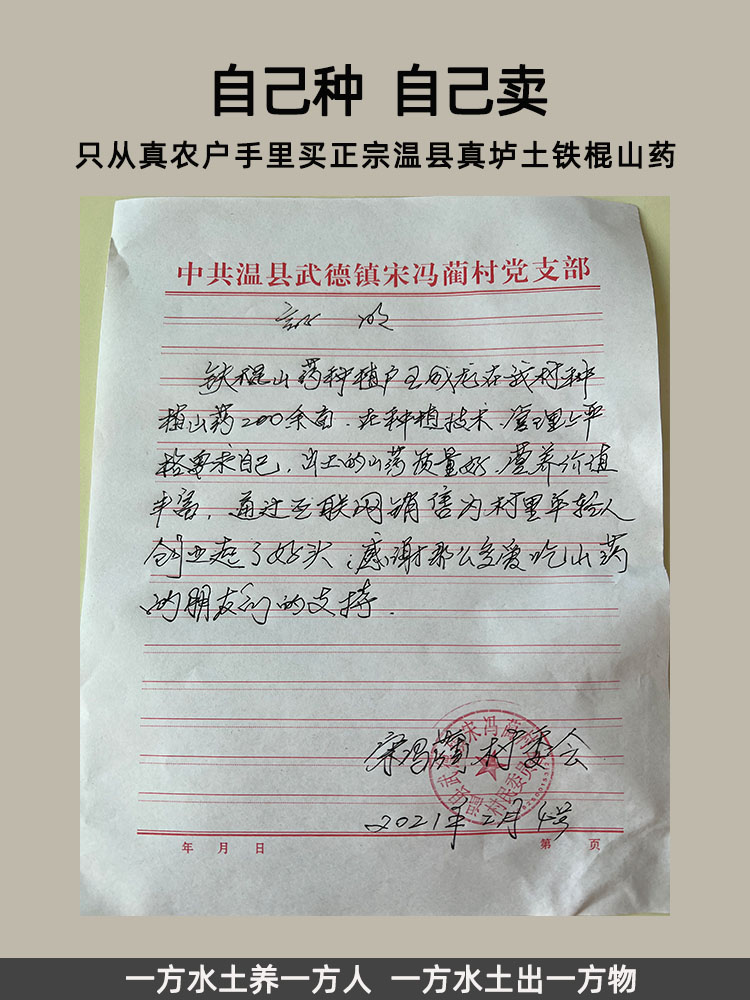 自己种 自己卖
只从真农户手里买正宗温县真垆土铁棍山药
中共温县武德镇宋冯蔺村党支部
证 明
铁棍山药种植户王成龙在我村种
植山药200余亩.在种植技术、管理上严
格要求自己,出土的山药质量好,营养价值
丰富,通过互联网销售为村里年轻人
创业起了好头,感谢那么多爱吃山药
的朋友们的支持.
宋冯蔺村委会
2021年2月4号
年 月 日
第 页
一方水土养一方人 一方水土出一方物